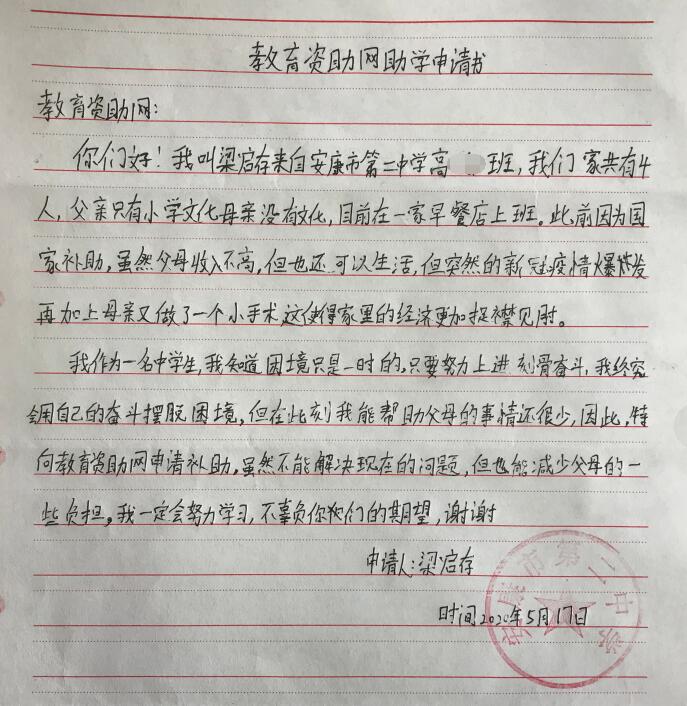 教育资助网助学申请书
教育资助网：
你们好！我叫梁启存来自安康市第二中学高班，我们家共有4
人，父亲只有小学文化母亲没有文化，目前在一家早餐店上班。此前因为国
家补助，虽然父母收入不高，但也还可以生活，但突然的新冠疫情爆发
再加上母亲又做了一个小手术这使得家里的经济更加捉襟见肘。
我作为一名中学生，我知道困境只是一时的，只要努力上进刻骨奋斗，我终究
会用自己的奋斗摆脱困境，但在此刻我能帮助父母的事情还很少，因此，特
向教育资助网申请补助，虽然不能解决现在的问题，但也能减少父母的一
些负担。我一定会努力学习，不辜负你们的期望，谢谢
申请人：梁启存
时间2020年5月17日
安康市第二中学